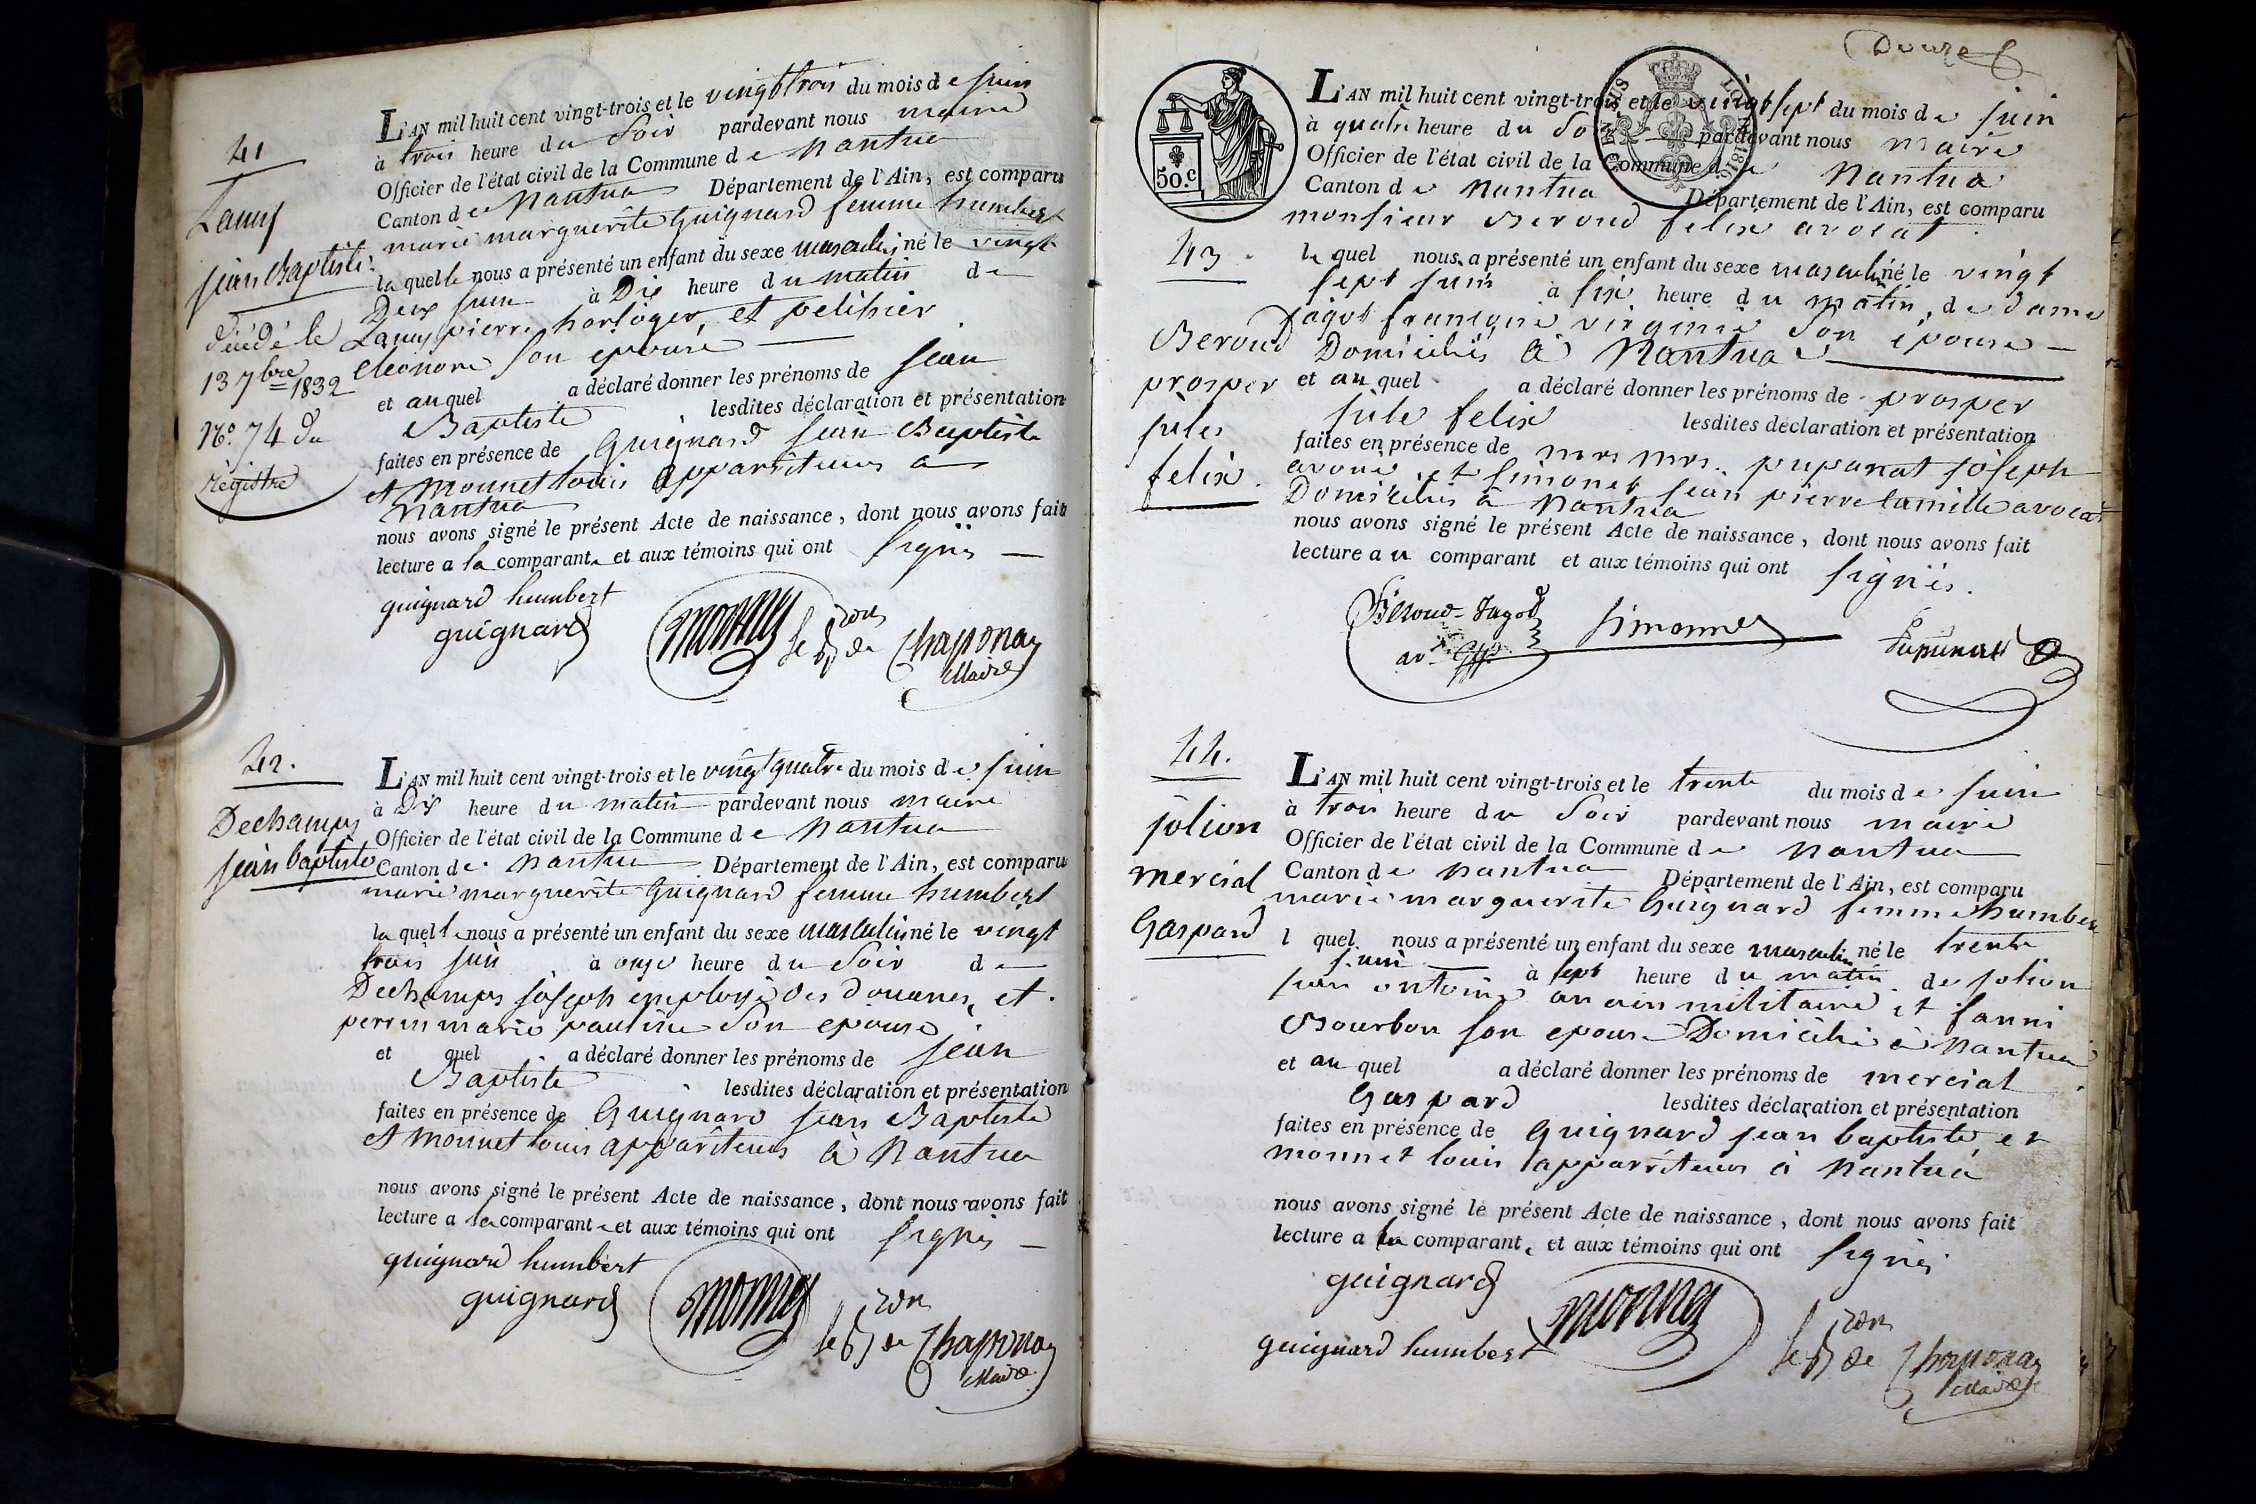 41
Lamy
jean Baptiste
décédé le
13 7bre 1832
No. 74 du
régistre
L'AN mil huit cent vingt-trois et le vingt trois du mois de juin
à trois heure du Soir pardevant nous maire
Officier de l'état civil de la Commune de Nantua
Canton de Nantua Département de l'Ain, est comparu
marie marguerite Guignard femme humbert
laquelle nous a présenté un enfant du sexe masculin né le vingt
Deux juin à Dix heure du matin de
Lamy pierre horloger et pelihier
eleonore Son epouse
et auquel a déclaré donner les prénoms de jean
Baptiste lesdites déclaration et présentation
faites en présence de Guignard jean Baptiste
et Monnet louis apparriteurs a
Nantua
nous avons signé le présent Acte de naissance, dont nous avons fait
lecture a la comparante et aux témoins qui ont signés
guignard humbert
guignard
monnet
le Bon de Chaponay
Maire
42.
Dechamps
jean baptiste
L'AN mil huit cent vingt-trois et le vingt quatre du mois de juin
à Dix heure du matin pardevant nous maire
Officier de l'état civil de la Commune de Nantua
Canton de Nantua Département de l'Ain, est comparu
marie marguerite Guignard femme humbert
laquelle nous a présenté un enfant du sexe masculin né le vingt
trois juin à onze heure du Soir de
Dechamps joseph employé des douanes, et
perrin marie pauline Son epouse
et quel a déclaré donner les prénoms de jean
Baptiste lesdites déclaration et présentation
faites en présence de Guignard jean Baptiste
et Monnet louis apparriteurs à Nantua
nous avons signé le présent Acte de naissance, dont nous avons fait
lecture a la comparante et aux témoins qui ont signés
guignard humbert
guignard
monnet
le Bon de Chaponay
Maire
Douze
50.C
43.
Beroud
prosper
jules
felix.
L'AN mil huit cent vingt-trois et le vingt sept du mois de juin
à quatre heure du Soir pardevant nous maire
Officier de l'état civil de la Commune de Nantua
Canton de Nantua Département de l'Ain, est comparu
monsieur Beroud felix avocat
lequel nous a présenté un enfant du sexe masculin né le vingt
sept juin à six heure du matin, de dame
jagot françoise virginie Son épouse
Domiciliés à Nantua
et auquel a déclaré donner les prénoms de prosper
jule felix lesdites déclaration et présentation
faites en présence de mrs mrs. pupunat joseph
avoué et Simonet jean pierre camille avocat
Domiciliés à Nantua
nous avons signé le présent Acte de naissance, dont nous avons fait
lecture au comparant et aux témoins qui ont signés.
Béroud-Jagot
Simonnet
Pupunat
44.
jolion
mercial
Gaspard
L'AN mil huit cent vingt-trois et le trente du mois de juin
à trois heure du Soir pardevant nous maire
Officier de l'état civil de la Commune de Nantua
Canton de Nantua Département de l'Ain, est comparu
marie marguerite Guignard femme humbert
l quel nous a présenté un enfant du sexe masculin né le trente
juin à sept heure du matin de jolion
jean antoine ancien militaire et fanni
Bourbon son epouse Domicilié à Nantua
et auquel a déclaré donner les prénoms de mercial
Gaspard lesdites déclaration et présentation
faites en présence de Guignard jean baptiste et
monnet louis apparriteurs à Nantua
nous avons signé le présent Acte de naissance, dont nous avons fait
lecture a la comparante et aux témoins qui ont signés
guignard
monnet
guignard humbert
le Bon de Chaponay
Maire